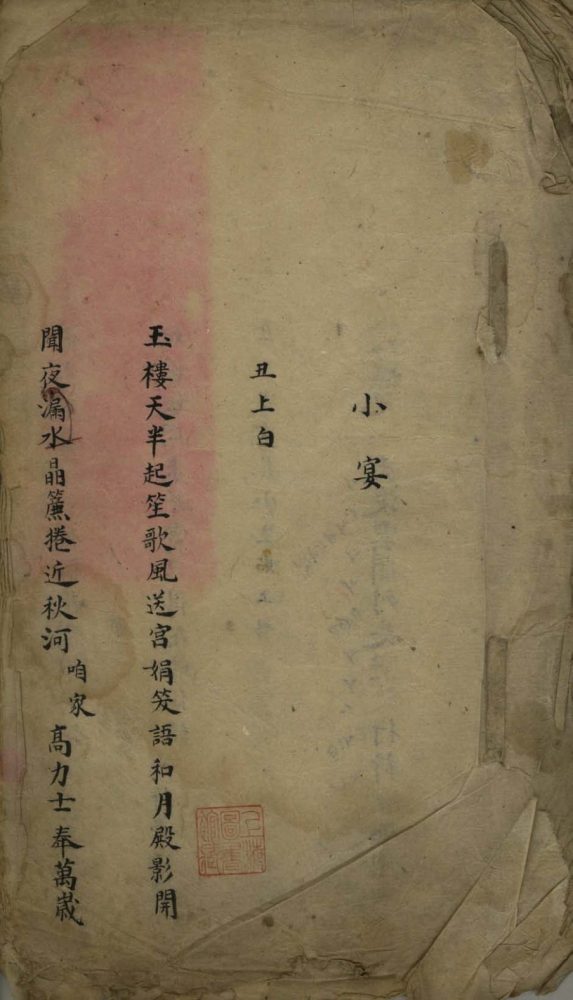 小宴
丑上白
玉樓天半起笙歌風送宮娟笑語和月殿影開
聞夜漏水晶簾捲近秋河咱家高力士奉萬歲
上海圖書館藏